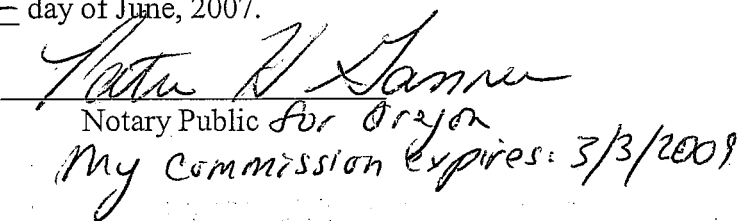 day of June, 2007.
Notary Public for Oregon
My commission expires: 3/3/2009